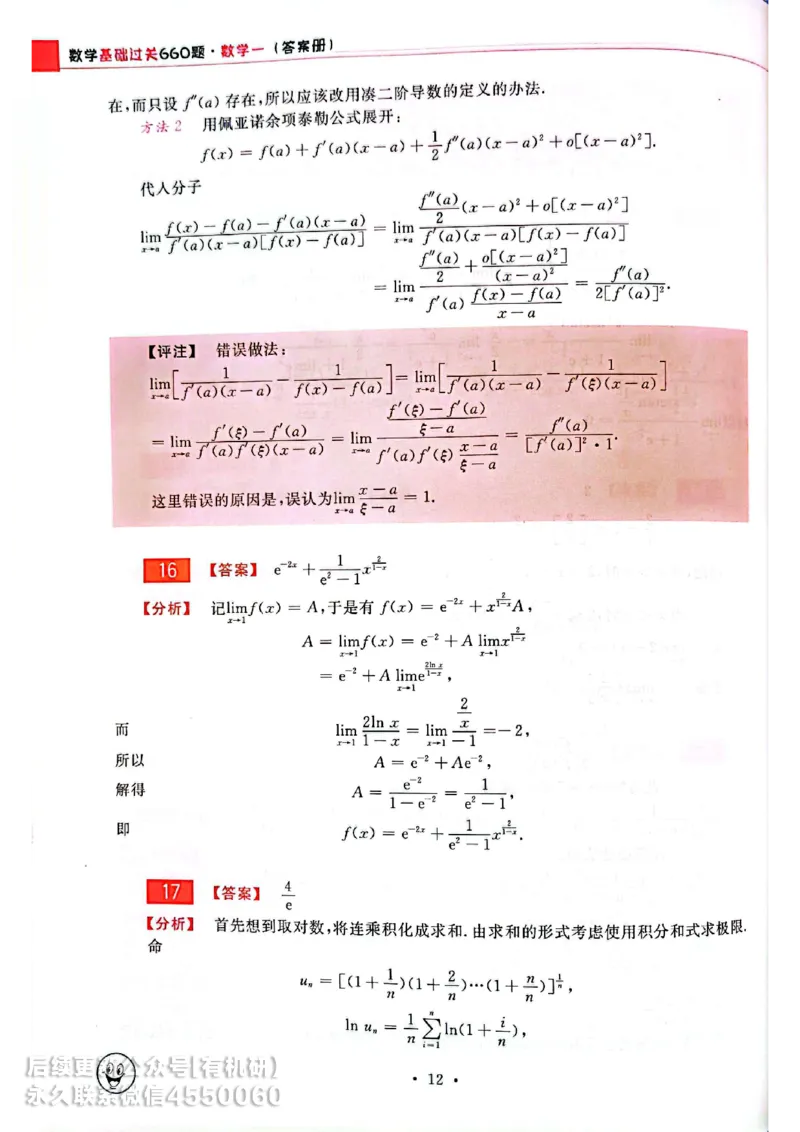 数学基础过关660题·数学一(答案册)
在,而只设 f″(a) 存在,所以应该改用凑二阶导数的定义的办法.
方法2 用佩亚诺余项泰勒公式展开:
f(x) = f(a) + f′(a)(x − a) + \frac{1}{2} f″(a)(x − a)² + o[(x − a)²].
代人分子
\lim_{x→a} \frac{f(x) − f(a) − f′(a)(x − a)}{f′(a)(x − a)[f(x) − f(a)]} = \lim_{x→a} \frac{\frac{f″(a)}{2}(x − a)² + o[(x − a)²]}{f′(a)(x − a)[f(x) − f(a)]}
= \lim_{x→a} \frac{\frac{f″(a)}{2} + \frac{o[(x − a)²]}{(x − a)²}}{f′(a) \frac{f(x) − f(a)}{x − a}} = \frac{f″(a)}{2[f′(a)]²}.
【评注】 错误做法:
\lim_{x→a} [\frac{1}{f′(a)(x − a)} − \frac{1}{f(x) − f(a)}] = \lim_{x→a} [\frac{1}{f′(a)(x − a)} − \frac{1}{f′(ξ)(x − a)}]
= \lim_{x→a} \frac{f′(ξ) − f′(a)}{f′(a)f′(ξ)(x − a)} = \lim_{x→a} \frac{\frac{f′(ξ) − f′(a)}{ξ − a}}{f′(a)f′(ξ) \frac{x − a}{ξ − a}} = \frac{f″(a)}{[f′(a)]² · 1}.
这里错误的原因是,误认为 \lim_{x→a} \frac{x − a}{ξ − a} = 1.
16 【答案】 e^{−2x} + \frac{1}{e² − 1} x^{\frac{2}{1−x}}
【分析】 记 \lim_{x→1} f(x) = A,于是有 f(x) = e^{−2x} + x^{\frac{2}{1−x}} A,
A = \lim_{x→1} f(x) = e^{−2} + A \lim_{x→1} x^{\frac{2}{1−x}}
= e^{−2} + A \lim_{x→1} e^{\frac{2\ln x}{1−x}},
而 \lim_{x→1} \frac{2\ln x}{1 − x} = \lim_{x→1} \frac{\frac{2}{x}}{−1} = −2,
所以 A = e^{−2} + Ae^{−2},
解得 A = \frac{e^{−2}}{1 − e^{−2}} = \frac{1}{e² − 1},
即 f(x) = e^{−2x} + \frac{1}{e² − 1} x^{\frac{2}{1−x}}.
17 【答案】 \frac{4}{e}
【分析】 首先想到取对数,将连乘积化成求和.由求和的形式考虑使用积分和式求极限.
命
u_n = [(1 + \frac{1}{n})(1 + \frac{2}{n})⋯(1 + \frac{n}{n})]^{\frac{1}{n}},
\ln u_n = \frac{1}{n} \sum_{i=1}^{n} \ln(1 + \frac{i}{n}),
后续更 公众号[有机研]
永久联系微信4550060
· 12 ·